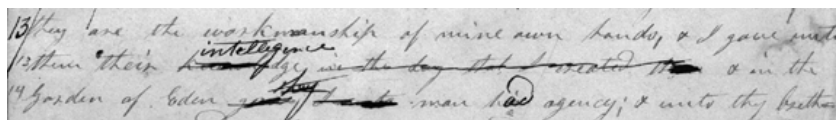 13 they are the workmanship of mine own hands, & I gave unto
intelligence
13 them their knowledge, in the day that I created them & in the
they
14 Garden of Eden gave man had agency; & unto thy breth-